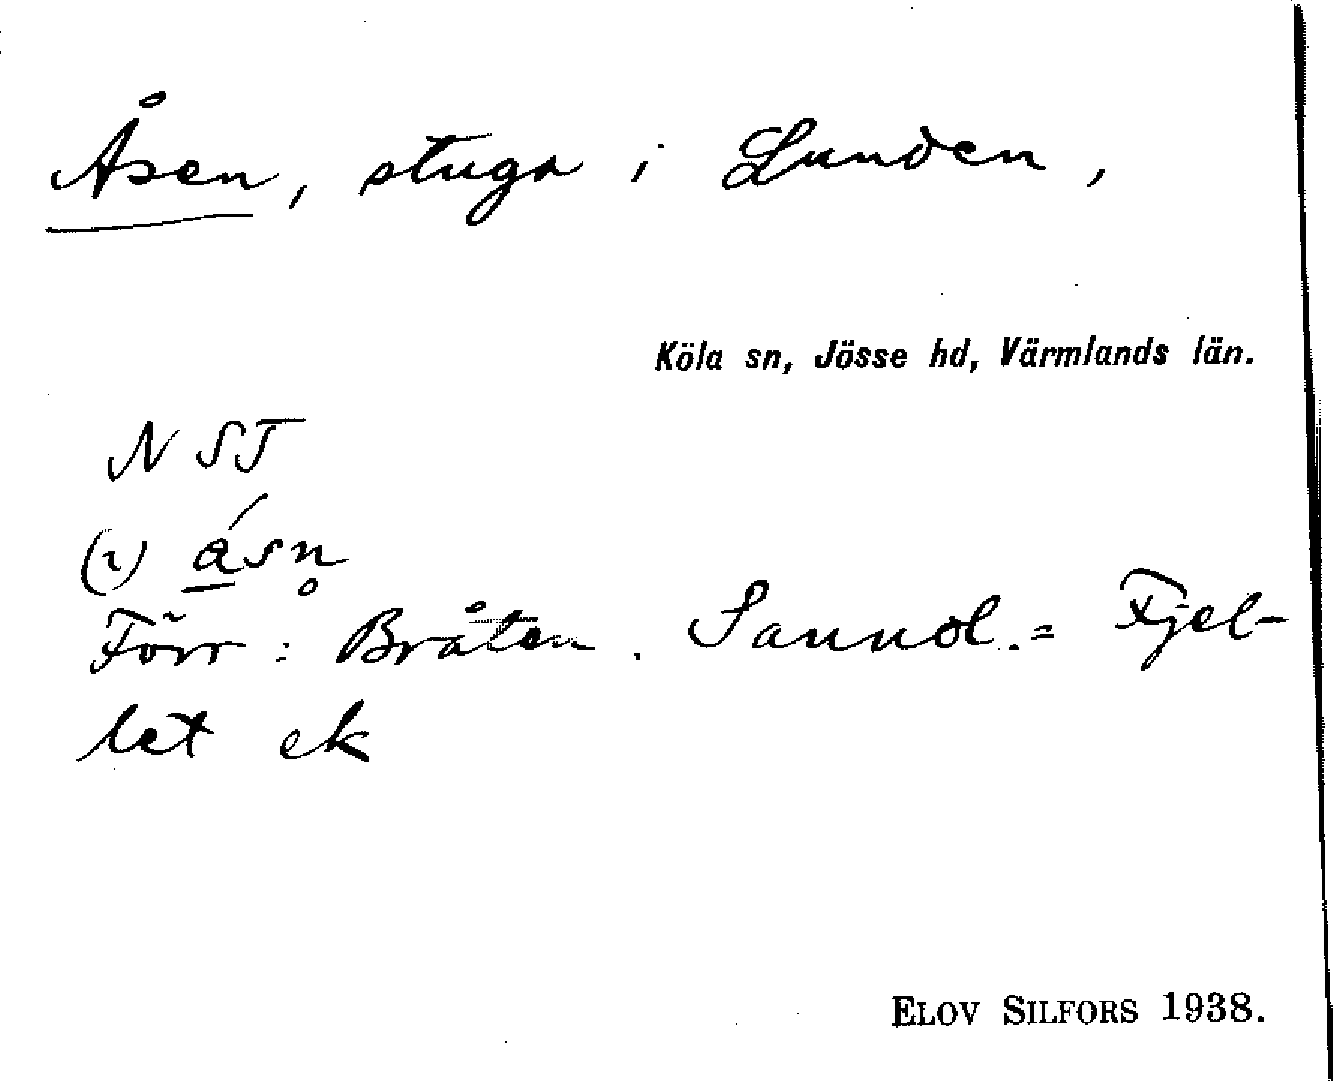 Åsen, stuga i Lunden,
Köla sn, Jösse hd, Värmlands län.
N ST
(2) ásn̥
Förr: Bråten. Sannol. = Fjel-
let ek
ELOV SILFORS 1938.